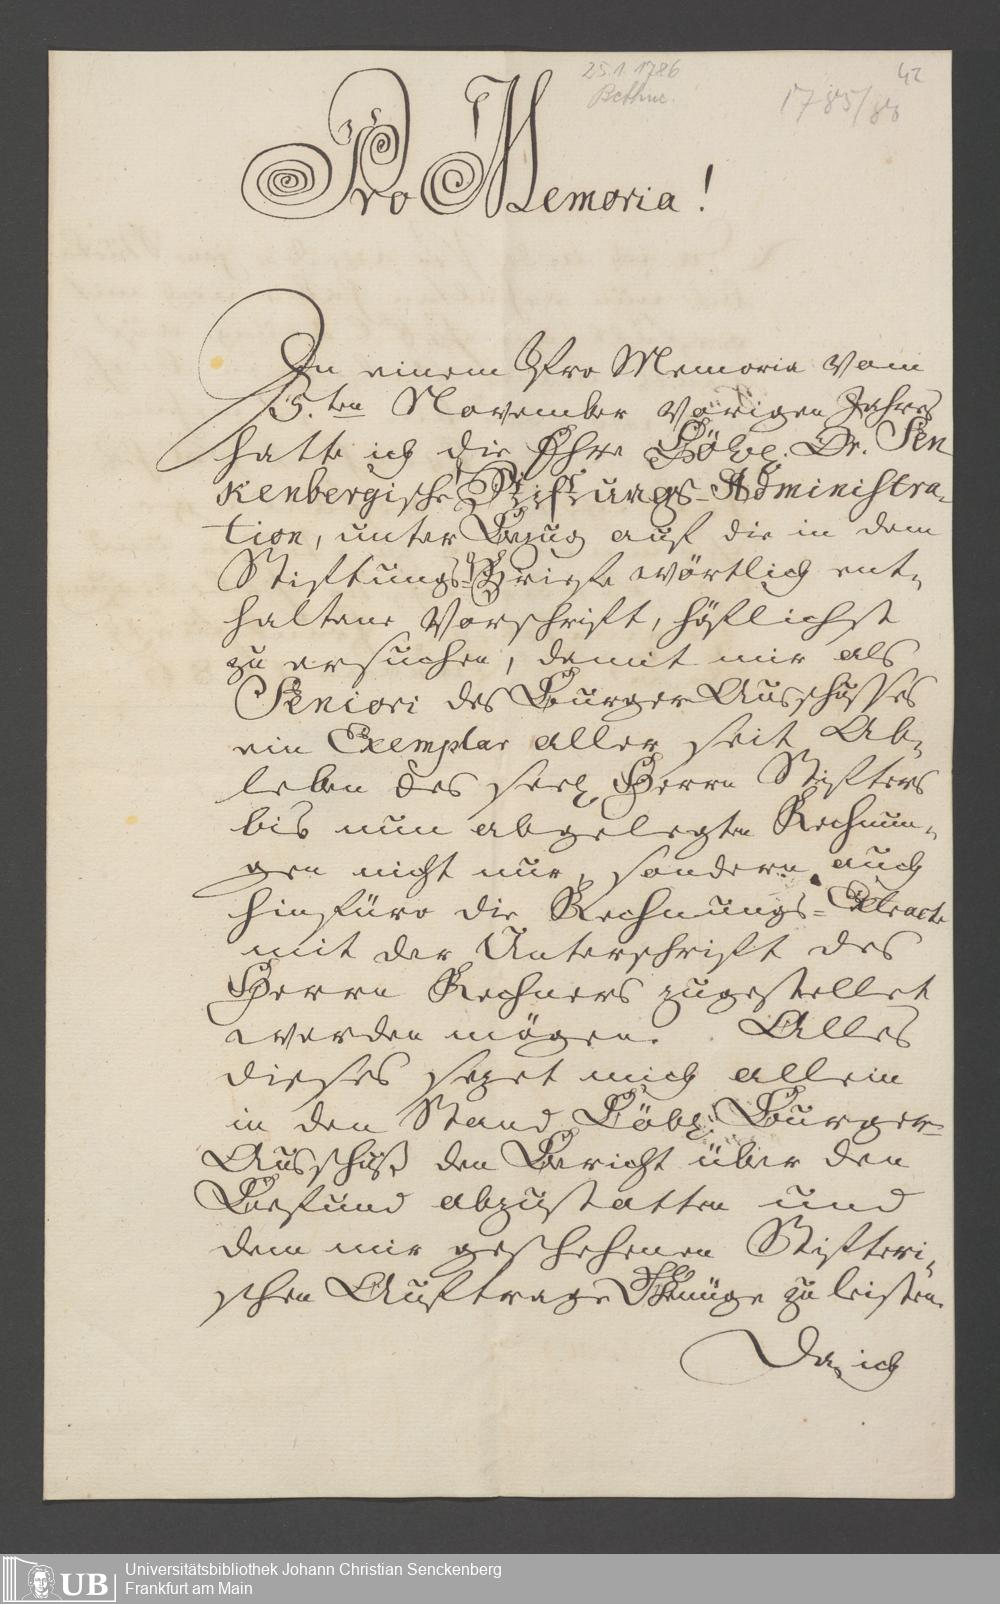 25.1.1786
Bethm.
1785/86
42
Pro Memoria!
In einem Pro Memoria vom
15.ten November vorigen Jahres
hatte ich die Ehre Löbl. Dr. Sen
kenbergische Stiftungs-Administra-
tion, unter Bezug auf die in dem
Stiftungs-Briefe wörtlich ent-
haltene Vorschrift, höflichst
zu ersuchen, damit mir als
Seniori des Burger Ausschusses
ein Exemplar aller seit Ab-
leben des seel. Herrn Stifters
bis nun abgelegten Rechnun-
gen nicht nur, sondern auch
hinführo die Rechnungs-Extracte
mit der Unterschrift des
Herrn Rechners zugestellet
werden mögen. Alles
dieses sezet mich allein
in den Stand Löbl: Burger-
Ausschuß den Bericht über den
Befund abzustatten und
dem mir geschehenen Stifteri-
schen Auftrage Genüge zu leisten.
Da ich
UB
Universitätsbibliothek Johann Christian Senckenberg
Frankfurt am Main